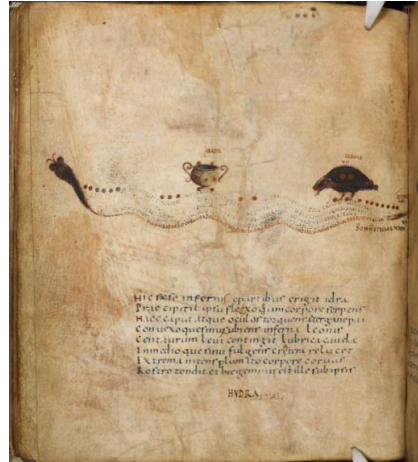 Hic sese infernis epartibus erigit idra
Praecipitit ipsu flexoquam corpore serpens
Haec caput atque oculos torquens
Convexoque sinu subiens inferna leonis
Centaurum levi contingit lubrica cauda
Inmedioque sinu fulgens cretera relucet
Extrema intens plumato corpore corvus
Rostro tondit et hic geminus est ille sub ipsis
HYDRA